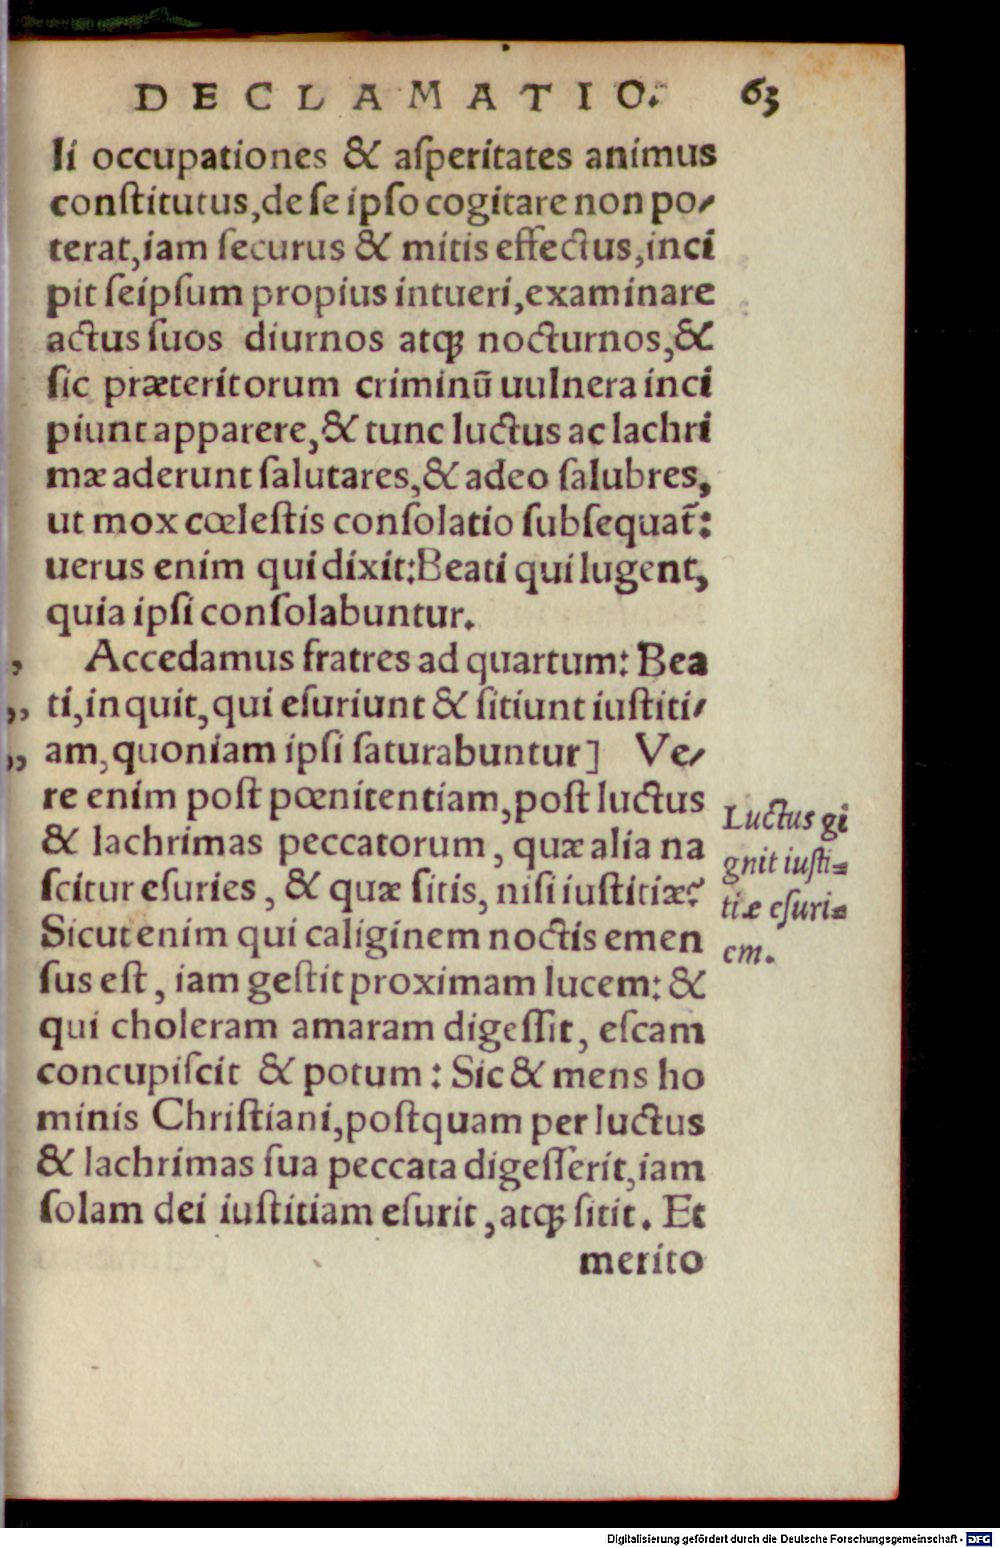 DECLAMATIO. 63
li occupationes & aſperitates animus
conſtitutus,de ſe ipſo cogitare non po-
terat,iam ſecurus & mitis effectus,inci
pit ſeipſum propius intueri,examinare
actus ſuos diurnos atqꝫ nocturnos,&
ſic præteritorum criminū uulnera inci
piunt apparere,& tunc luctus ac lachri
mæ aderunt ſalutares,& adeo ſalubres,
ut mox cœleſtis conſolatio ſubſequat᷑:
uerus enim qui dixit:Beati qui lugent,
quia ipſi conſolabuntur.
, Accedamus fratres ad quartum: Bea
,, ti,inquit,qui eſuriunt & ſitiunt iuſtiti-
,, am,quoniam ipſi ſaturabuntur] Ve-
re enim poſt pœnitentiam,poſt luctus
& lachrimas peccatorum, quæ alia na
ſcitur eſuries, & quæ ſitis, niſi iuſtitiæ?
Sicut enim qui caliginem noctis emen
ſus eſt, iam geſtit proximam lucem: &
qui choleram amaram digeſſit, eſcam
concupiſcit & potum: Sic & mens ho
minis Chriſtiani,poſtquam per luctus
& lachrimas ſua peccata digeſſerit,iam
ſolam dei iuſtitiam eſurit,atqꝫ ſitit. Et
merito
Luctus gi
gnit iuſti=
tiæ eſuri=
em.
Digitalisierung gefördert durch die Deutsche Forschungsgemeinschaft - DFG